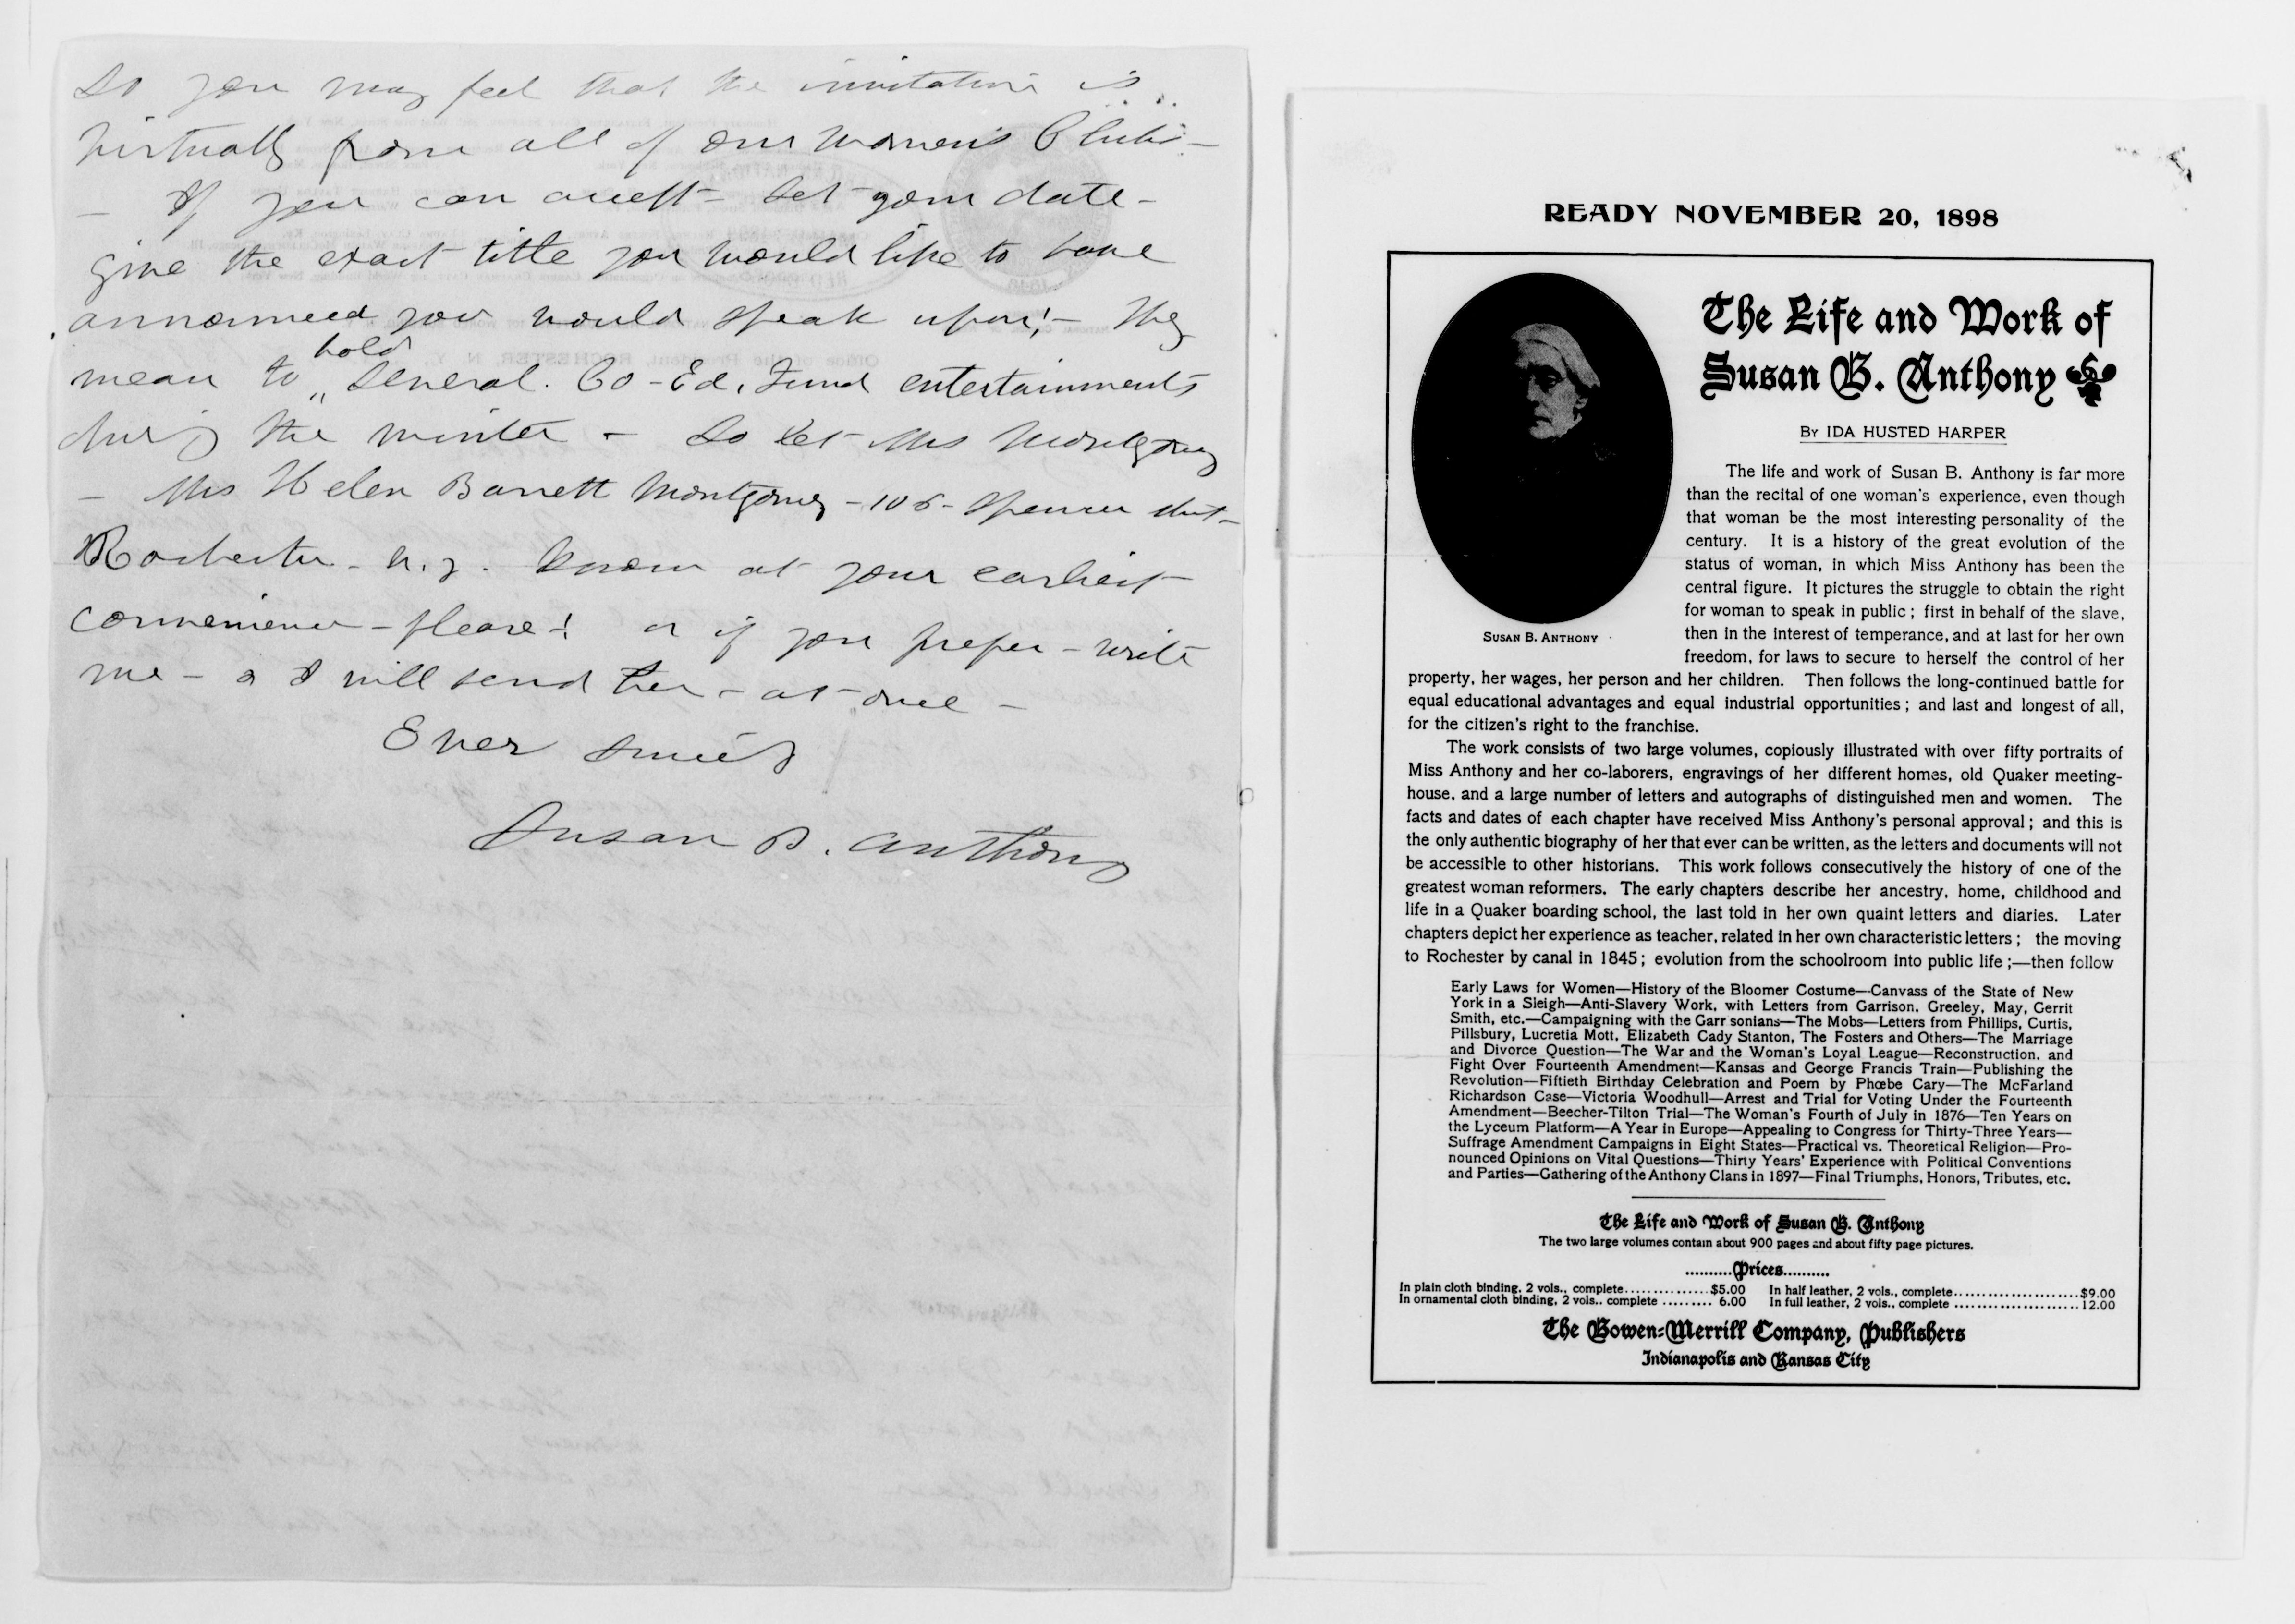 So you may feel that the invitation is
virtually from all of our women's Clubs -
- If you can accept - set your date -
give the exact title you would like to have
announced you would speak upon! - They
mean to hold several Co-Ed. Fund entertainments
during the winter - So let Mrs Montgomery
- Mrs Helen Barrett Montgomery - 106 - Spencer street -
Rochester - N.Y. know at your earliest
convenience - please! or if you prefer - write
me - & I will send her - at once -
Ever Sincerely
Susan B. Anthony
READY NOVEMBER 20, 1898
The Life and Work of
Susan B. Anthony
BY IDA HUSTED HARPER
SUSAN B. ANTHONY
The life and work of Susan B. Anthony is far more
than the recital of one woman's experience, even though
that woman be the most interesting personality of the
century. It is a history of the great evolution of the
status of woman, in which Miss Anthony has been the
central figure. It pictures the struggle to obtain the right
for woman to speak in public; first in behalf of the slave,
then in the interest of temperance, and at last for her own
freedom, for laws to secure to herself the control of her
property, her wages, her person and her children. Then follows the long-continued battle for
equal educational advantages and equal industrial opportunities; and last and longest of all,
for the citizen's right to the franchise.
The work consists of two large volumes, copiously illustrated with over fifty portraits of
Miss Anthony and her co-laborers, engravings of her different homes, old Quaker meeting-
house, and a large number of letters and autographs of distinguished men and women. The
facts and dates of each chapter have received Miss Anthony's personal approval; and this is
the only authentic biography of her that ever can be written, as the letters and documents will not
be accessible to other historians. This work follows consecutively the history of one of the
greatest woman reformers. The early chapters describe her ancestry, home, childhood and
life in a Quaker boarding school, the last told in her own quaint letters and diaries. Later
chapters depict her experience as teacher, related in her own characteristic letters; the moving
to Rochester by canal in 1845; evolution from the schoolroom into public life;—then follow
Early Laws for Women—History of the Bloomer Costume—Canvass of the State of New
York in a Sleigh—Anti-Slavery Work, with Letters from Garrison, Greeley, May, Gerrit
Smith, etc.—Campaigning with the Garr sonians—The Mobs—Letters from Phillips, Curtis,
Pillsbury, Lucretia Mott, Elizabeth Cady Stanton, The Fosters and Others—The Marriage
and Divorce Question—The War and the Woman's Loyal League—Reconstruction, and
Fight Over Fourteenth Amendment—Kansas and George Francis Train—Publishing the
Revolution—Fiftieth Birthday Celebration and Poem by Phœbe Cary—The McFarland
Richardson Case—Victoria Woodhull—Arrest and Trial for Voting Under the Fourteenth
Amendment—Beecher-Tilton Trial—The Woman's Fourth of July in 1876—Ten Years on
the Lyceum Platform—A Year in Europe—Appealing to Congress for Thirty-Three Years—
Suffrage Amendment Campaigns in Eight States—Practical vs. Theoretical Religion—Pro-
nounced Opinions on Vital Questions—Thirty Years' Experience with Political Conventions
and Parties—Gathering of the Anthony Clans in 1897—Final Triumphs, Honors, Tributes, etc.
The Life and Work of Susan B. Anthony
The two large volumes contain about 900 pages and about fifty page pictures.
..........Prices..........
In plain cloth binding, 2 vols., complete...............$5.00 In half leather, 2 vols., complete.......................$9.00
In ornamental cloth binding, 2 vols.. complete ......... 6.00 In full leather, 2 vols., complete .......................12.00
The Bowen-Merrill Company, Publishers
Indianapolis and Kansas City